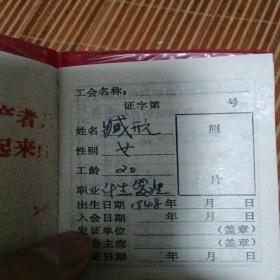 产者,
起来
工会名称:
证字第 号
姓名 臧
性别 女
工龄 20
职业 计生管理
照片
出生日期1948年 月 日
入会日期 年 月 日
发证单位 (盖章)
会主席 (盖章)
证日期 年 月 日